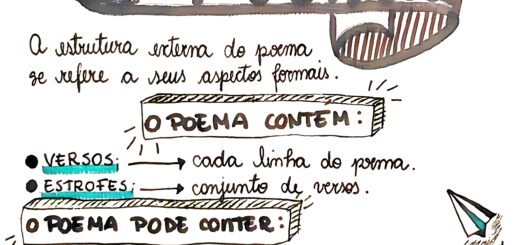 A estrutura externa do poema
se refere a seus aspectos formais.
O POEMA CONTEM:
VERSOS: → cada linha do poema.
ESTROFES: → conjunto de versos.
O POEMA PODE CONTER: